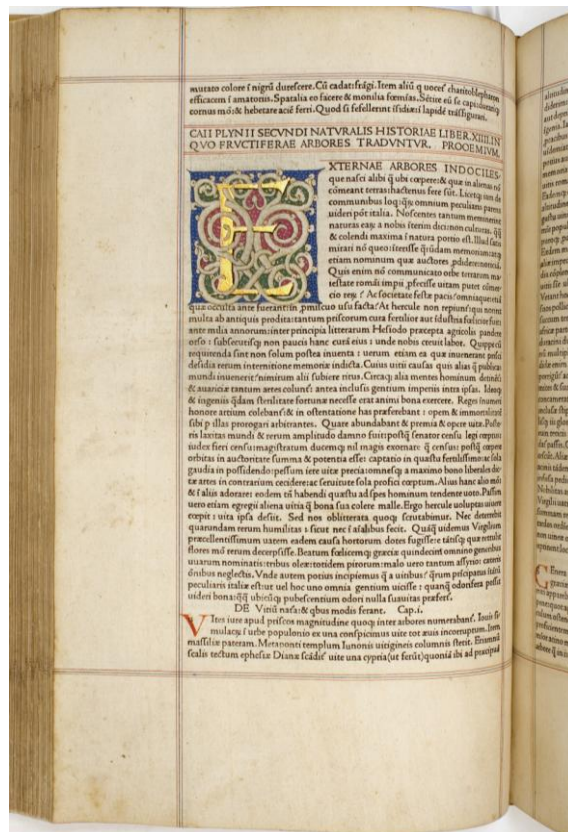 mutato colore ī nigrū durescere. Cū cadat: frāgi. Item aliū q̄ uocēt charitoblepharon
efficacem ī amatoriis. Spatalia eo facere & monilia fœmīas. Sētire eū se capi: durariq;
cornus mō: & hebetare aciē ferri. Quod si fefellerint īsidiæ: ī lapidē trāsfigurari.
CAII PLYNII SECVNDI NATVRALIS HISTORIAE LIBER. XIIII. IN
QVO FRVCTIFERAE ARBORES TRADVNTVR. PROOEMIVM.
EXTERNAE ARBORES INDOCILES:
que nasci alibi q̄ ubi cœpere: & quæ in alienas nō
cōmeant terras: hactenus fere sūt. Licetq; iam de
communibus loq: q̄rū omnium peculiaris parens
uideri pōt italia. Noscentes tantum meminerint
naturas eaȝ a nobis iterim dici: non culturas. q̄q̄
& colendi maxima ī natura portio est. Illud satis
mirari nō queo: īterisse q̄rūdam memoriam: atq;
etiam nominum quæ auctores pdidere: noticiā.
Quis enim nō communicato orbe terrarum ma-
iestate romāi impii pfecisse uitam putet cōmer-
cio reȝ? Ac societate festæ pacis? omniaque etiā
quæ occulta ante fuerant: in pmiscuo usu facta? At hercule non repiunt: qui norint
multa ab antiquis prodita: tantum priscorum cura fertilior aut īdustria fœlicior fuit:
ante milia annorum: inter principia litterarum Hesiodo præcepta agricolis pandere
orso: subsecutisq; non paucis hanc curā eius: unde nobis creuit labor. Quippe cū
requirenda sint non solum postea inuenta: uerum etiam ea quæ inuenerant prisci
desidia rerum internitione memoriæ indicta. Cuius uitii causas quis alias q̄ publicas
mundi inuenerit? nimirum alii subiere ritus. Circaq; alia mentes hominum detinēt:
& auaritiæ tantum artes colunt: antea inclusis gentium imperiis intra ipsas. Ideoq;
& ingeniis q̄dam sterilitate fortunæ necesse erat animi bona exercere. Reges īnumeri
honore artium colebant: & in ostentatione has præferebant: opem & immortalitatē
sibi p illas prorogari arbitrantes. Quare abundabant & premia & opera uitæ. Poste-
ris laxitas mundi & rerum amplitudo damno fuit: postq̄ senator censu legi cœptus:
iudex fieri censu: magistratum ducemq; nil magis exornare q̄ census: postq̄ cœpere
orbitas in auctoritate summa & potentia esse: captatio in quæstu fertilissimo: ac sola
gaudia in possidendo: pessum iere uitæ precia: omnesq; a maximo bono liberales dic-
tæ artes in contrarium cecidere: ac seruitute sola profici cœptum. Alius hanc alio mōi
& ī aliis adorare: eodem tn̄ habendi quæstu ad spes hominum tendente uoto. Passim
uero etiam egregii aliena uitia q̄ bona sua colere malle. Ergo hercule uoluptas uiuere
cœpit: uita ipsa desiit. Sed nos oblitterata quoq; scrutabimur. Nec deterrebit
quarundam rerum humilitas: sicut nec ī aīalibus fecit. Quāq̄ uidemus Virgilium
præcellentissimum uatem eadem causa hortorum dotes fugisse: e tātisq; quæ retulit
flores mō rerum decerpsisse. Beatum fœlicemq; græciæ quindecim omnino generibus
uuarum nominatis: tribus oleæ: totidem pirorum: malo uero tantum assyrio: ceteris
ōnibus neglectis. Vnde autem potius incipiemus q̄ a uitibus? q̄rum prīcipatus ītātū
peculiaris italiæ est: ut uel hoc uno omnia gentium uicisse: quanq̄ odorifera possit
uideri bona: q̄q̄ ubicūq; pubescentium odori nulla suauitas præfert.
DE Vitiū nat̄a: & qbus modis ferant. Cap. i.
VItes iure apud priscos magnitudine quoq; inter arbores numerabant. Iouis si-
mulacȝ ī urbe populonio ex una conspicimus uite tot æuis incorruptum. Item
massiliæ pateram. Metaponti templum Iunonis uitigineis columnis stetit. Etiamnū
scalis tectum ephesiæ Dianæ scādit' uite una cypria (ut ferūt) quoniā ibi ad præcipuā